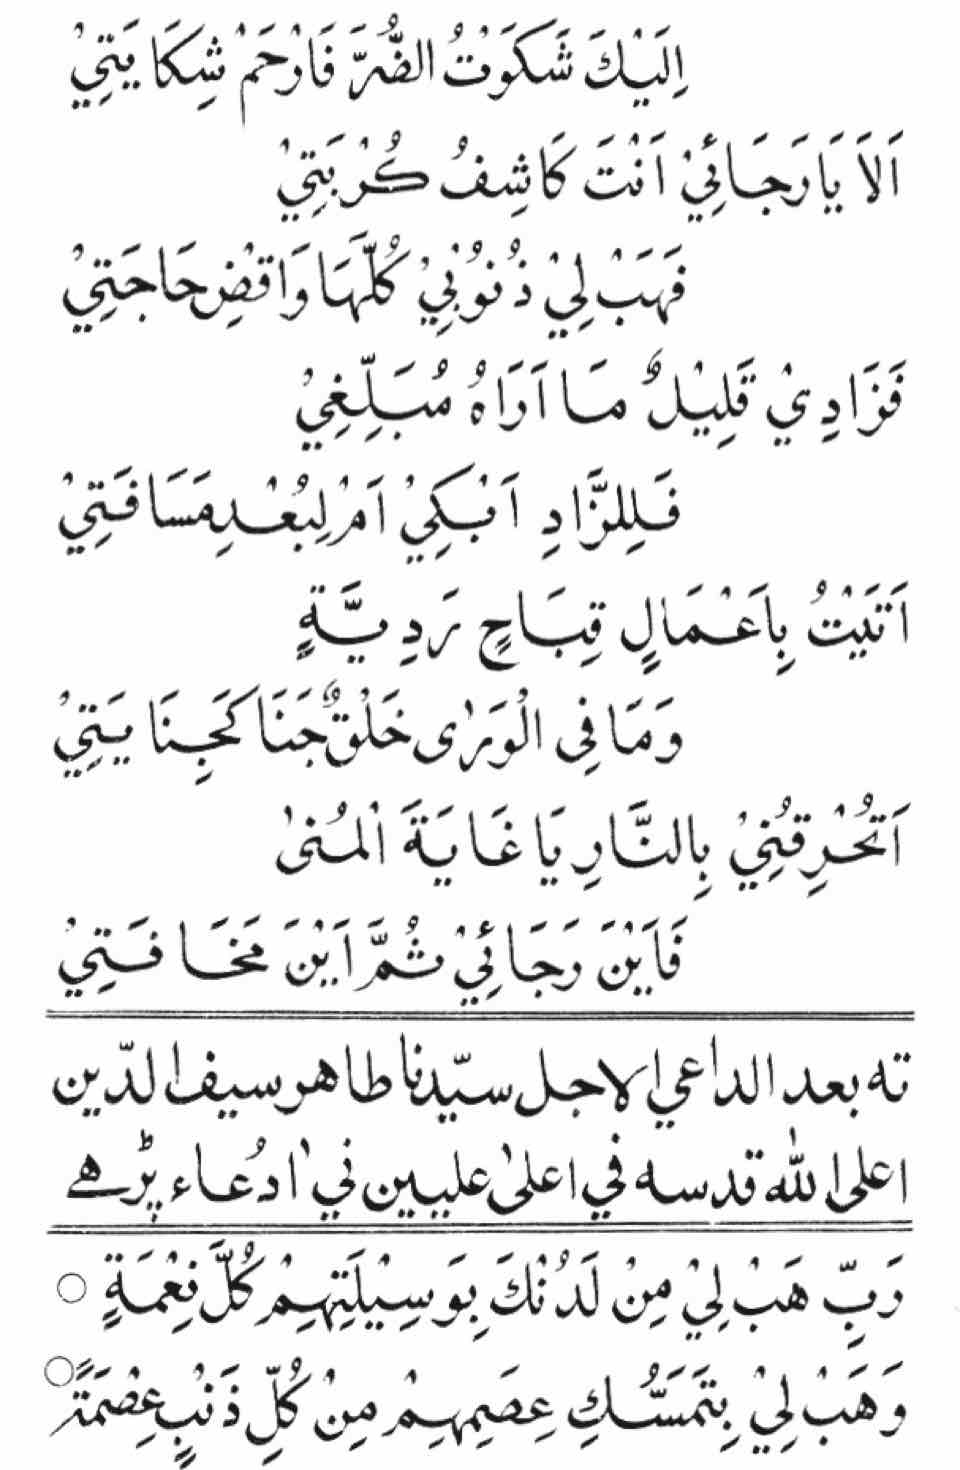 اِلَيْكَ شَكَوْتُ الضُّرَّ فَارْحَمْ شِكَايَتِيْ
اَلاَ يَا رَجَائِيْ اَنْتَ كَاشِفُ كُرْبَتِيْ
فَهَبْ لِيْ ذُنُوْبِيْ كُلَّهَا وَاقْضِ حَاجَتِيْ
فَزَادِيْ قَلِيْلٌ مَا اَرَاهُ مُبَلِّغِيْ
فَلِلزَّادِ اَبْكِيْ اَمْ لِبُعْدِ مَسَافَتِيْ
اَتَيْتُ بِاَعْمَالٍ قِبَاحٍ رَدِيَّةٍ
وَمَا فِى الْوَرٰى خَلْقٌ جَنَا كَجِنَايَتِيْ
اَتُحْرِقُنِيْ بِالنَّارِ يَا غَايَةَ الْمُنٰى
فَاَيْنَ رَجَائِيْ ثُمَّ اَيْنَ مَخَافَتِيْ
ته بعد الداعي الاجل سيّدنا طاهر سيف الدّين
اعلى الله قدسه في اعلىٰ عليين نيْ ادُعاء پڑهے
رَبِّ هَبْ لِيْ مِنْ لَدُنْكَ بِوَسِيْلَتِهِمْ كُلَّ نِعْمَةٍ ○
وَهَبْ لِيْ بِتَمَسُّكِ عِصَمِهِمْ مِنْ كُلِّ ذَنْبٍ عِصْمَةً ○